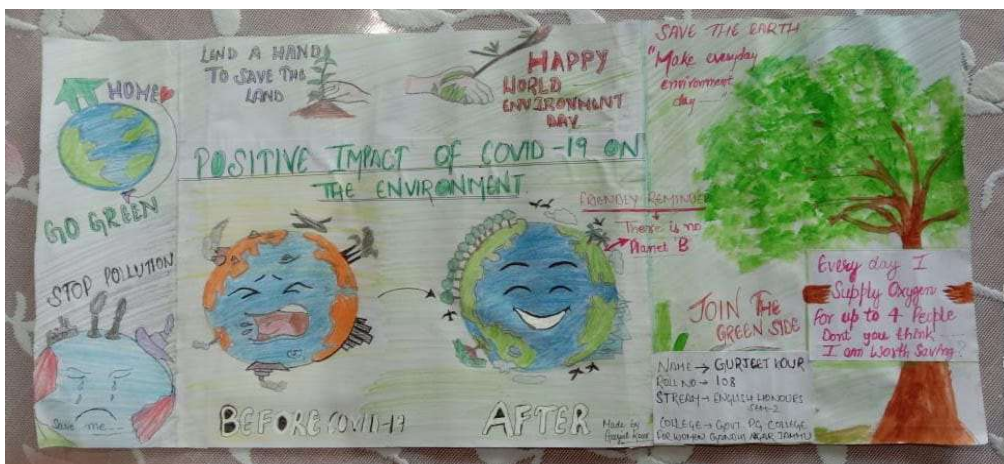 HOME
GO GREEN
STOP POLLUTION
Save me...
LEND A HAND
TO SAVE THE
LAND
HAPPY
WORLD
ENVIRONMENT
DAY
POSITIVE IMPACT OF COVID-19 ON
THE ENVIRONMENT
BEFORE COVID-19
AFTER
Made by
SAVE THE EARTH
"Make everyday
environment
day
FRIENDLY REMINDER
There is no
Planet 'B'
JOIN THE
GREEN SIDE
Every day I
Supply Oxygen
For up to 4 People
Dont you think
I am Worth Saving?
NAME → GURJEET KOUR
ROLL NO → 108
STREAM → ENGLISH HONOURS
SEM-2
COLLEGE → GOVT. PG COLLEGE
FOR WOMEN JAMMU